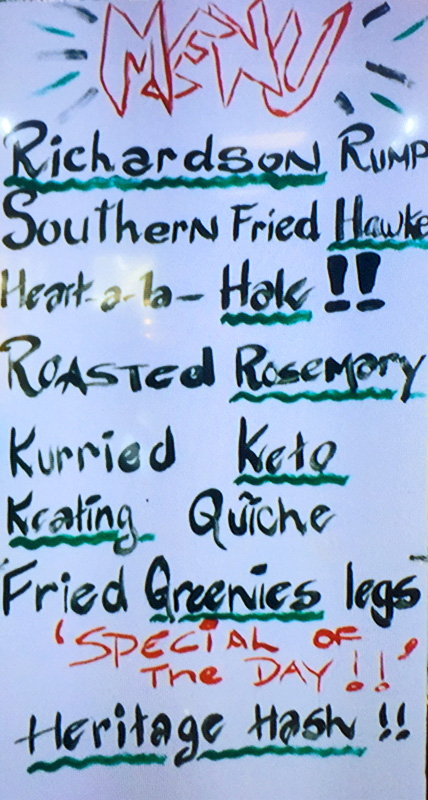 MENU
Richardson Rump
Southern Fried Hawke
Heart-a-la- Hale !!
Roasted Rosemary
Kurried Keto
Keating Quiche
Fried Greenies legs
'SPECIAL OF
The DAY!!'
Heritage Hash !!